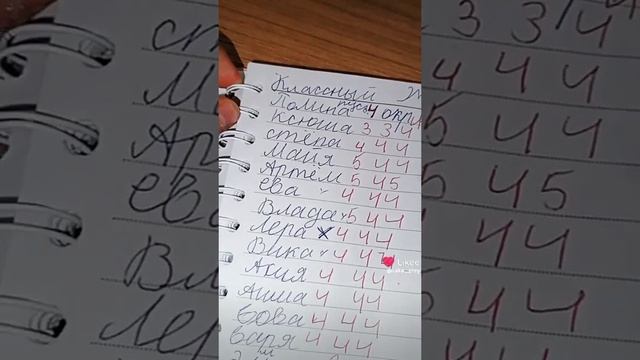 Классный
Полина пусть 4 окр 4
Ксюша 3 3 4
Стёпа 4 4 4
Майя 5 4 4
Артём 5 4 5
Ева 4 4 4
Влада 5 4 4
Лера х 4 4 4
Вика 4 4
Likee
Асия 4 4 4
Аиша 4 4 4
Вова 4 4 4
Варя 4 4 4